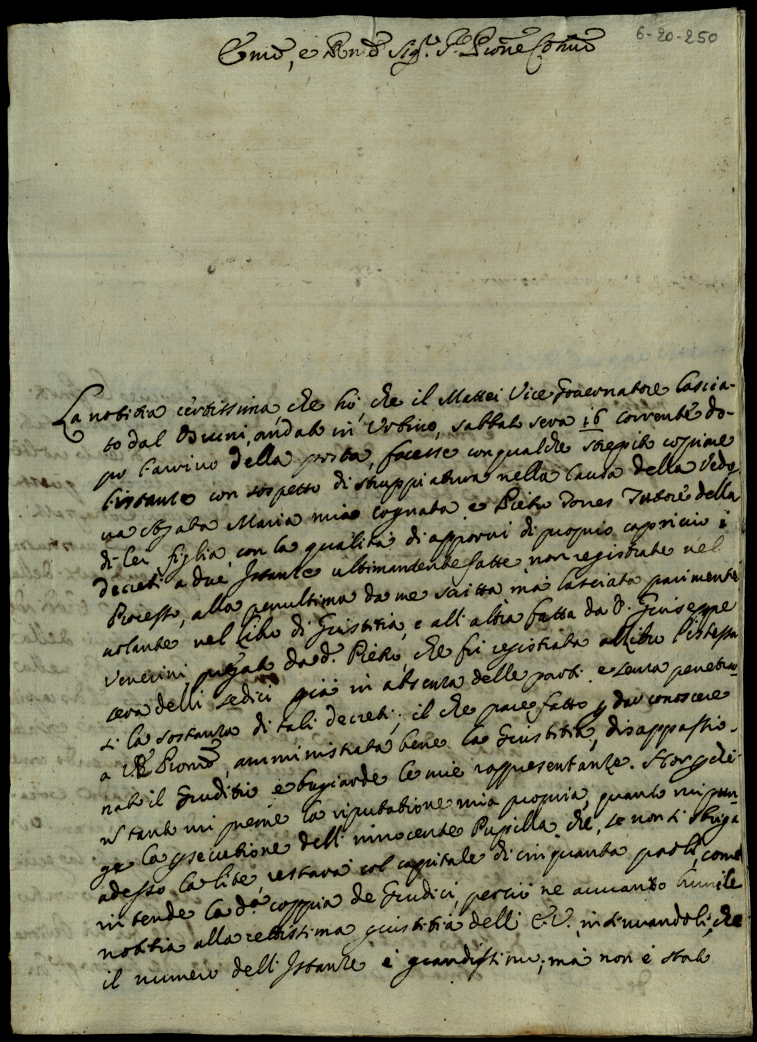 6-20-250
Em̃o, e Rm̃o Sig.r P.rone Col.mo
La notitia certissima, che hò, che il Mattei Vice Governatore lascia-
to dal Bruni, andato in Urbino, sabbato sera 16 corrente do-
po l'arrivo della posta, facesse con qualche strepito copiare
l'istanze con sospetto di struppiatura nella Causa della Vedo-
va Maria mia cognata e Pietro Torres Tutore della
di lei figlia, con la qualità di apporvi di proprio capricio i
decreti a due Istanze ultimamente fatte, non registrate nel
Processo, alla penultima da me scritta mà lasciata parimente
volante nel libro di Giustitia, e all'altra fatta da D. Giuseppe
Venerini pregato da d.o Pietro, che fù registrata al libro l'istessa
sera delli sedici già in absenza delle parti e senza penetrar-
si la sostanza di tali decreti; il che pare fatto p dar conoscere
a amministrata bene la Giustitia, disappassio-
nato il Giuditio e bugiarde le mie rappresentanze. Hor p che
nò tanto mi preme la riputatione mia propria, quanto mi pun-
ge la psecutione dell'innocente Pupilla che, se non si sbriga
adesso la lite, restarà col capitale di cinquanta paoli, come
intende la d.a coppia de Giudici, perciò ne avvanzo humile
notitia alla rettissima giustitia dell'E.V. insinuandoli, che
il numero dell'Istanze è grandissimo; mà non è stato